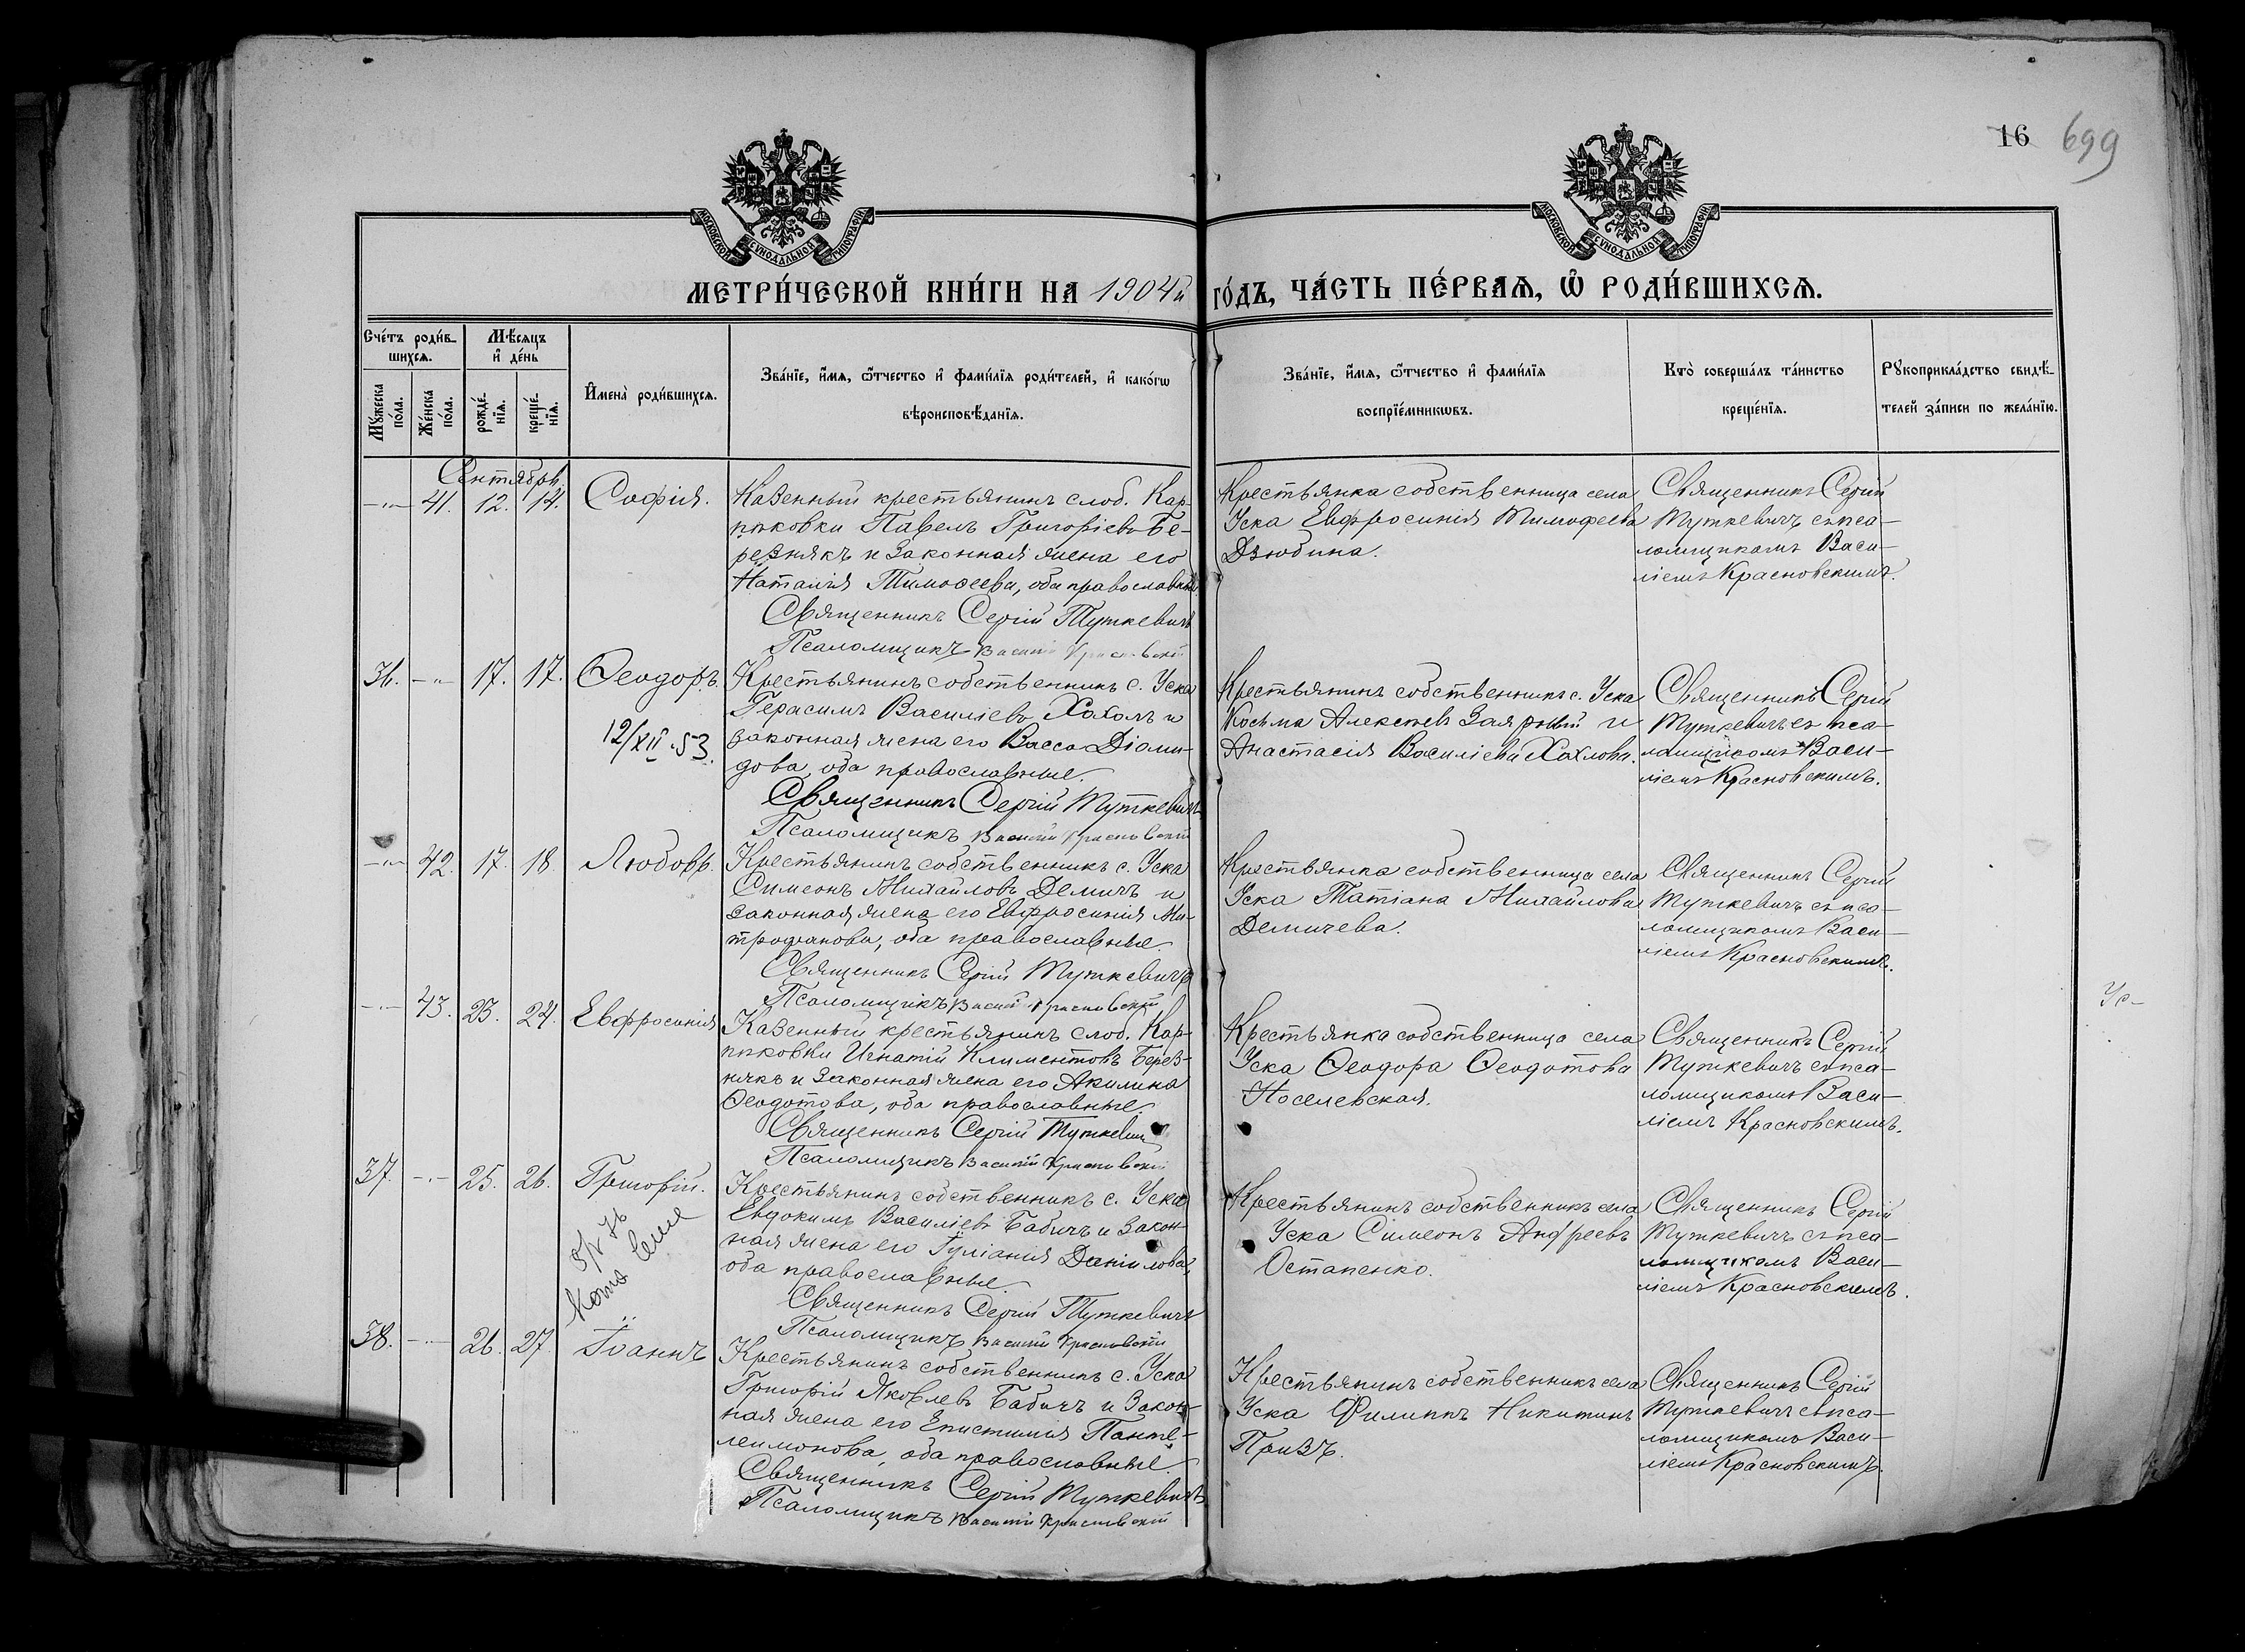 16 699
МОСКОВСКОЙ СУНОДАЛЬНОЙ ТИПОГРАФІИ
МОСКОВСКОЙ СУНОДАЛЬНОЙ ТИПОГРАФІИ
МЕТРИ́ЧЕСКОЙ КНИ́ГИ НА 1904й ГО́ДЪ, ЧА́СТЬ ПЕ́РВАѦ, Ѡ҆ РОДИ́ВШИХСѦ.
Сче́тъ роди́в-
шихсѧ.
Мꙋ́жеска по́ла.
Же́нска по́ла.
Мѣ́сѧцъ
и҆ де́нь
рожде́-
нїѧ.
креще́-
нїѧ.
И҆мена̀ роди́вшихсѧ.
Зва́нїе, и҆́мѧ, ѻ҆́тчество и҆ фами́лїѧ роди́телей, и҆ како́гѡ
вѣроисповѣ́данїѧ.
Зва́нїе, и҆́мѧ, ѻ҆́тчество и҆ фами́лїѧ
воспрїе́мникѡвъ.
Кто̀ соверша́лъ та́инство
креще́нїѧ.
Рꙋкоприкла́дство свидѣ́-
телей за́писи по жела́нїю.
Сентябрь
-"- 41. 12. 14. Софія.
Казенный крестьянинъ слоб. Кар-
пиковки Павелъ Григоріевъ Бе-
резнякъ и законная жена его
Наталія Тимофеева, оба православные.
Священникъ Сергій Туткевичъ
Псаломщикъ Василій Красновскій
Крестьянка собственница села
Уска Евфросинія Тимофеева
Дзюбина.
Священникъ Сергій
Туткевичъ съ пса-
ломщикомъ Васи-
ліемъ Красновскимъ.
36. -"- 17. 17. Ѳеодоръ.
12/XII 53.
Крестьянинъ собственникъ с. Уска
Герасимъ Василіевъ Хохолъ и
законная жена его Васса Діоми-
дова, оба православные.
Священникъ Сергій Туткевичъ
Псаломщикъ Василій Красновскій
Крестьянинъ собственникъ с. Уска
Косьма Алексѣевъ Заярный и
Анастасія Василіева Хохлова.
Священникъ Сергій
Туткевичъ съ пса-
ломщикомъ Васи-
ліемъ Красновскимъ.
-"- 42. 17. 18. Любовь.
Крестьянинъ собственникъ с. Уска
Симеонъ Михайловъ Демичъ и
законная жена его Евфросинія Ми-
трофанова, оба православные.
Священникъ Сергій Туткевичъ
Псаломщикъ Василій Красновскій
Крестьянка собственница села
Уска Татіана Михайлова
Демичева.
Священникъ Сергій
Туткевичъ съ пса-
ломщикомъ Васи-
ліемъ Красновскимъ.
-"- 43. 23. 24. Евфросинія
Казенный крестьянинъ слоб. Кар-
пиковки Игнатій Климентовъ Берез-
някъ и законная жена его Акилина
Ѳеодотова, оба православные.
Священникъ Сергій Туткевичъ
Псаломщикъ Василій Красновскій
Крестьянка собственница села
Уска Ѳеодора Ѳеодотова
Носелевская.
Священникъ Сергій
Туткевичъ съ пса-
ломщикомъ Васи-
ліемъ Красновскимъ.
37. -"- 25. 26. Григорій.
Крестьянинъ собственникъ с. Уска
Евдокимъ Василіевъ Бабичъ и закон-
ная жена его Іуліанія Даніилова,
оба православные.
Священникъ Сергій Туткевичъ
Псаломщикъ Василій Красновскій
Крестьянинъ собственникъ села
Уска Симеонъ Андреевъ
Остапенко.
Священникъ Сергій
Туткевичъ съ пса-
ломщикомъ Васи-
ліемъ Красновскимъ.
38. -"- 26. 27. Іоаннъ
Крестьянинъ собственникъ с. Уска
Григорій Яковлевъ Бабичъ и закон-
ная жена его Епистимія Панте-
леимонова, оба православные.
Священникъ Сергій Туткевичъ
Псаломщикъ Василій Красновскій
Крестьянинъ собственникъ села
Уска Филиппъ Никитинъ
Призъ.
Священникъ Сергій
Туткевичъ съ пса-
ломщикомъ Васи-
ліемъ Красновскимъ.